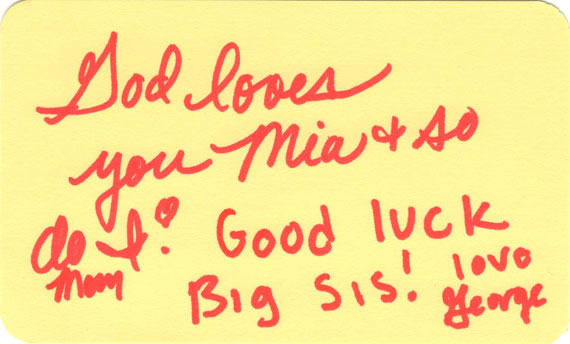 God loves
you Mia & so
do I!
Mom
Good luck
Big Sis! love
George